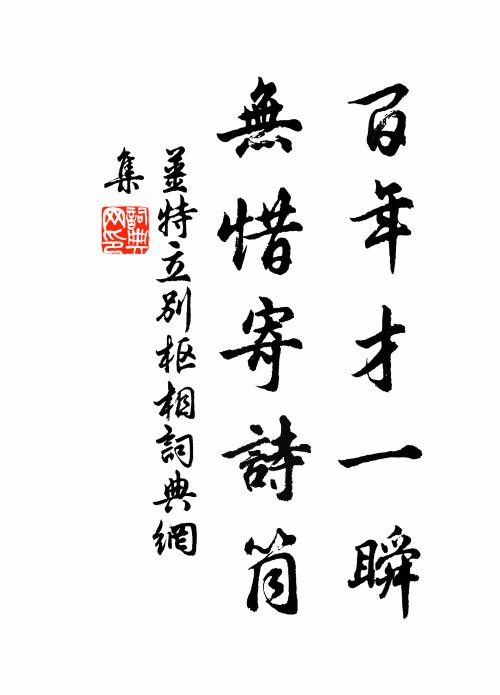 百年才一瞬
無惜寄詩筒
姜特立別枢相詞典網
集
詞典網印